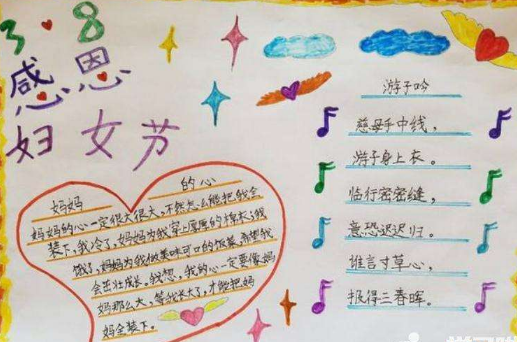 3 8
感恩
妇女节
妈妈的心
妈妈的心一定很大很大,不然怎么能把我全
装下,我冷了,妈妈为我穿上厚厚的棉衣;我
饿了,妈妈为我做美味可口的饭菜,希望我
会茁壮成长。我想,我的心一定要像妈
妈那么大,等我长大了,才能把妈
妈全装下。
游子吟
慈母手中线,
游子身上衣。
临行密密缝,
意恐迟迟归。
谁言寸草心,
报得三春晖。